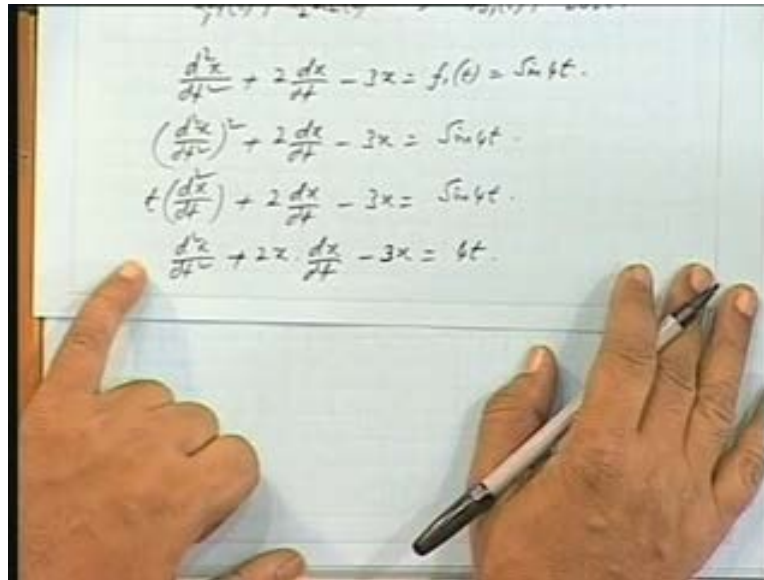 d²x/dt² + 2 dx/dt - 3x = f₁(t) = Sin 4t.
(d²x/dt²)² + 2 dx/dt - 3x = Sin 4t.
t(d²x/dt) + 2 dx/dt - 3x = Sin 4t.
d²x/dt² + 2x. dx/dt - 3x = 4t.